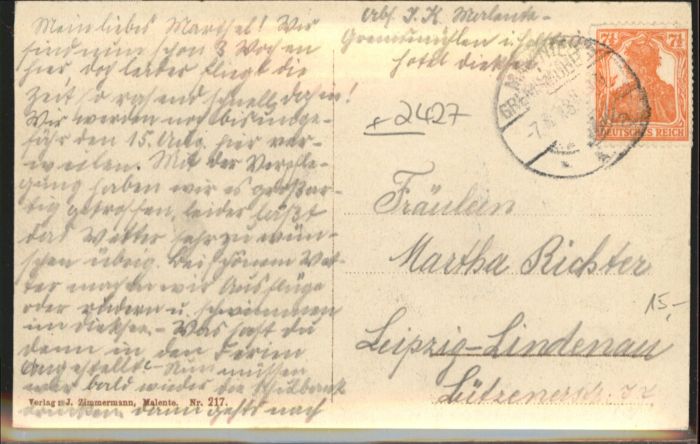 Mein liebes Marthel! Wir
sind nun schon 3 Wochen
hier, doch leider fliegt die
Zeit so rasend schnell dahin!
Wir werden noch bis unge-
fähr den 15. Aug. hier ver-
weilen. Mit der Verpfle-
gung haben wir es großar-
tig getroffen, leider läßt
das Wetter sehr zu wün-
schen übrig. Bei schönem Wet-
ter machen wir Ausflüge
oder rudern u. schwimmen
im Dieksee. – Was hast du
denn in den Ferien
angestellt? Nun müssen
wir bald wieder die Schulbank
drücken, dann gehts nach
Verlag: J. Zimmermann, Malente. Nr. 217.
Abs. I. K. Malente-
Gremsmühlen i. Holst.
Hotel Dieksee
+ 2427
7½ 7½
DEUTSCHES REICH
Fräulein
Martha Richter
Leipzig-Lindenau
Lützenerstr.
15,-